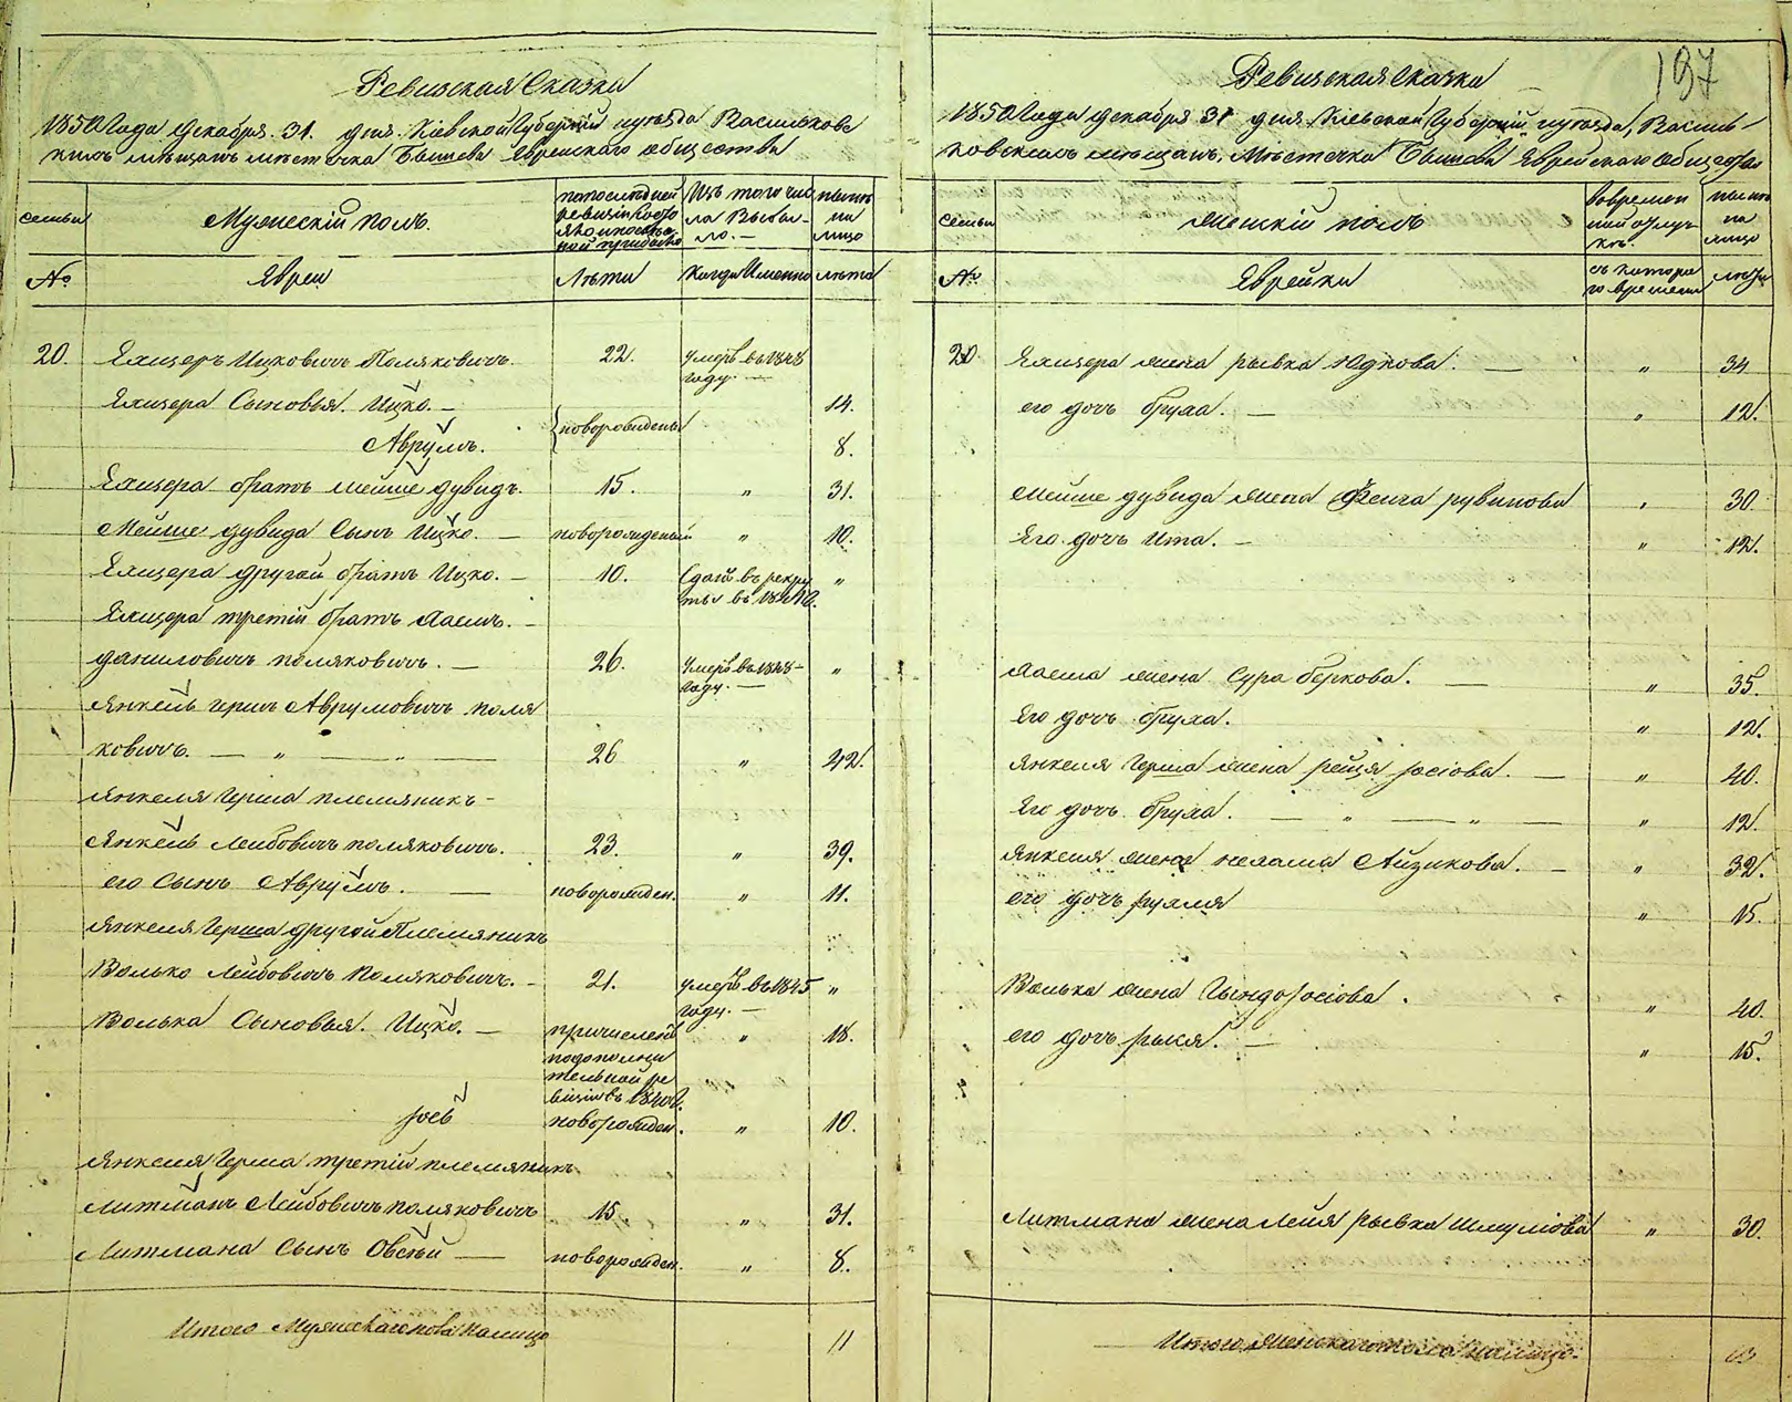 Ревизская Сказка
1850 Года Декабря 31. дня Кіевской Губерніи уѣзда Васильковс
кихъ мѣщанъ мѣстечка Бышева Еврейскаго общества
семьи
Мужескій полъ.
по последней
ревизіи состо
яло и после
ной прибыло
Изъ того чис
ла выбы-
ло.
ныне
на
лицо
№
Евреи
Лѣта
Когда Именно
лѣта
20. Елизеръ Ицковичъ Поляковичъ. 22. умеръ въ 1848
году.
Елизера Сыновья. Ицко. 14.
новорожденны
Аврумъ. 8.
Елизера братъ Мейше дувидъ. 15. " 31.
Мейше дувида Сынъ Ицко. новорожденый " 10.
Елизера другой братъ Ицко. 10. Сданъ въ рекру "
ты въ
Елизера третій братъ
даниловичъ поляковичъ. 26. Умеръ въ 1848 "
году.
Янкель герш Аврумовичъ поля
ковичъ. " 26 " 42.
Янкеля Герша племяникъ
Янкель Лейбовичъ поляковичъ. 23. " 39.
его Сынъ Аврумъ. новорожден. " 11.
Янкеля Герша другой Племяникъ
Волько Лейбовичъ Поляковичъ. 21. умеръ въ 1845 "
году.
Волька Сыновья. Ицко. причисленъ " 18.
по дополни
тельной ре
визіи въ 1840 г.
Іось новорожден. " 10.
Янкеля Герша третій племяникъ
Литманъ Лейбовичъ поляковичъ 15. " 31.
Литмана Сынъ Овсѣй новорожден. " 8.
Итого Мужескаго пола налицо 11
197
Ревизская Сказка
1850 Года Декабря 31 дня Кіевской Губерніи уѣзда, Василь-
ковскихъ мѣщанъ, Мѣстечка Бышева Еврейскаго Общества
Семьи
Женскій полъ
во времен
ной отлуч
кѣ.
ныне
на
лицо
№
Еврейки
съ котора
го времени
лѣта
20. Елизера жена рывка Юдкова. " 34
его дочь бруха. " 12.
Мейше дувида жена Фейга рувинова " 30.
Его дочь Ита. " 12.
жена Сура беркова. " 35.
Его дочь бруха. " 12.
Янкеля Герша жена рейзя Іосіова. " 40.
Его дочь бруха. " " " 12.
Янкеля жена нехама Айзикова. " 32.
его дочь рухля " 15.
Волька жена Гында Іосіова. " 40.
его дочь рыся. " 15.
Литмана жена Лея рывка шмуліова " 30.
Итого женскаго пола налицо.